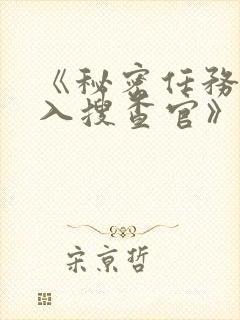 《秘密任务
入搜查官》
宋京哲